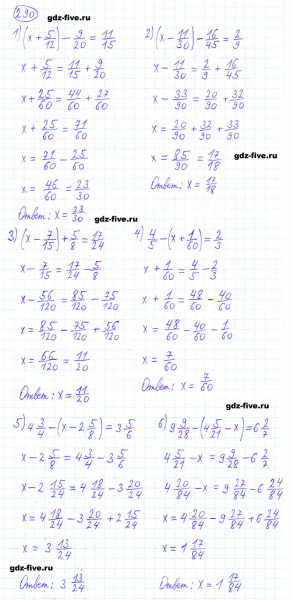 290
gdz-five.ru
1) (x + 5/12) - 9/20 = 11/15
x + 5/12 = 11/15 + 9/20
x + 25/60 = 44/60 + 27/60
x + 25/60 = 71/60
x = 71/60 - 25/60
x = 46/60 = 23/30
Ответ: x = 23/30
2) (x - 11/30) - 16/45 = 2/9
x - 11/30 = 2/9 + 16/45
x - 33/90 = 20/90 + 32/90
x = 20/90 + 32/90 + 33/90
x = 85/90 = 17/18
gdz-five.ru
Ответ: x = 17/18
gdz-five.ru
3) (x - 7/15) + 5/8 = 17/24
x - 7/15 = 17/24 - 5/8
x - 56/120 = 85/120 - 75/120
x = 85/120 - 75/120 + 56/120
x = 66/120 = 11/20
Ответ: x = 11/20
4) 4/5 - (x + 1/60) = 2/3
x + 1/60 = 4/5 - 2/3
x + 1/60 = 48/60 - 40/60
x = 48/60 - 40/60 - 1/60
x = 7/60
Ответ: x = 7/60
gdz-five.ru
5) 4 3/4 - (x - 2 5/8) = 3 5/6
x - 2 5/8 = 4 3/4 - 3 5/6
x - 2 15/24 = 4 18/24 - 3 20/24
x = 4 18/24 - 3 20/24 + 2 15/24
x = 3 13/24
gdz-five.ru
Ответ: 3 13/24
6) 9 9/28 - (4 5/21 - x) = 6 2/7
4 5/21 - x = 9 9/28 - 6 2/7
4 20/84 - x = 9 27/84 - 6 24/84
x = 4 20/84 - 9 27/84 + 6 24/84
x = 1 17/84
Ответ: x = 1 17/84